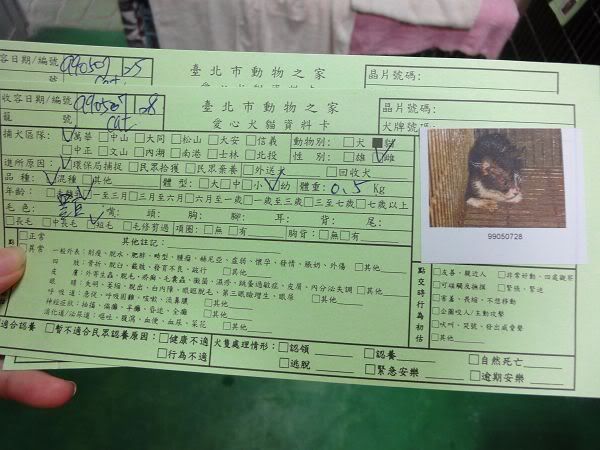 容日期/編號
臺北市動物之家
晶片號碼:
收容日期/編號
990507 28
臺北市動物之家
晶片號碼:
籠 號
cat
愛心犬貓資料卡
犬牌號碼:
捕犬區隊: 萬華 □中山 □大同 □松山 □大安 □信義 動物別: □犬 ■貓
□中正 □文山 □內湖 □南港 □士林 □北投 性 別: □雄 雌
進所原因: 環保局捕捉 □民眾拾獲 □民眾棄養 □外送犬 □回收犬
品 種: 混種 □其他 體 型: □大 □中 □小 幼 體重: 0.5 Kg
年齡: □一至三月 □三月至六月 □六月至一歲 □一歲至三歲 □三至七歲 □七歲以上
毛 色: 嘴: 頭: 胸: 腳: 耳: 背: 尾:
□長毛 □中長毛 短毛 □毛修剪過 項圈: □無 □有 胸背: □無 □有
99050728
□正常 其他註記:
□異常 一般外表: 削瘦、脫水、肥胖、畸型、腫瘤、補尼亞、虛弱、懷孕、發情、脹奶、外傷 □其他
四 肢: 骨折、脫臼、截肢、發育不良、跛行 □其他
皮 膚: 外寄生蟲、脫毛、疥癬、毛囊蟲、黴菌、濕疹、跳蚤過敏症、皮屑、內分泌失調 □其他
眼 睛: 失明、萎縮、脫出、白內障、眼瞼脫毛、第三眼瞼增生、眼屎 □其他
呼吸道: 急促、呼吸困難、咳嗽、流鼻膿 □其他
神經症狀: 抽搐、偏癱、半癱、昏迷、全癱 □其他
消化道/泌尿道: 嘔吐、腹瀉、血便、血尿、采花 □其他
點交時行為初估
□友善、親近人 □非常好動、四處觀察
□可碰觸及撫摸 □緊張、警迷
□害羞、長縮、不想移動
□企圖咬人/主動攻擊
□吠叫、哭號、發出威脅聲
□其他
適合認養 □暫不適合民眾認養原因: □健康不適 犬隻處理情形: □認領 □認養 □自然死亡
□行為不適 □逃脫 □緊急安樂 □逾期安樂